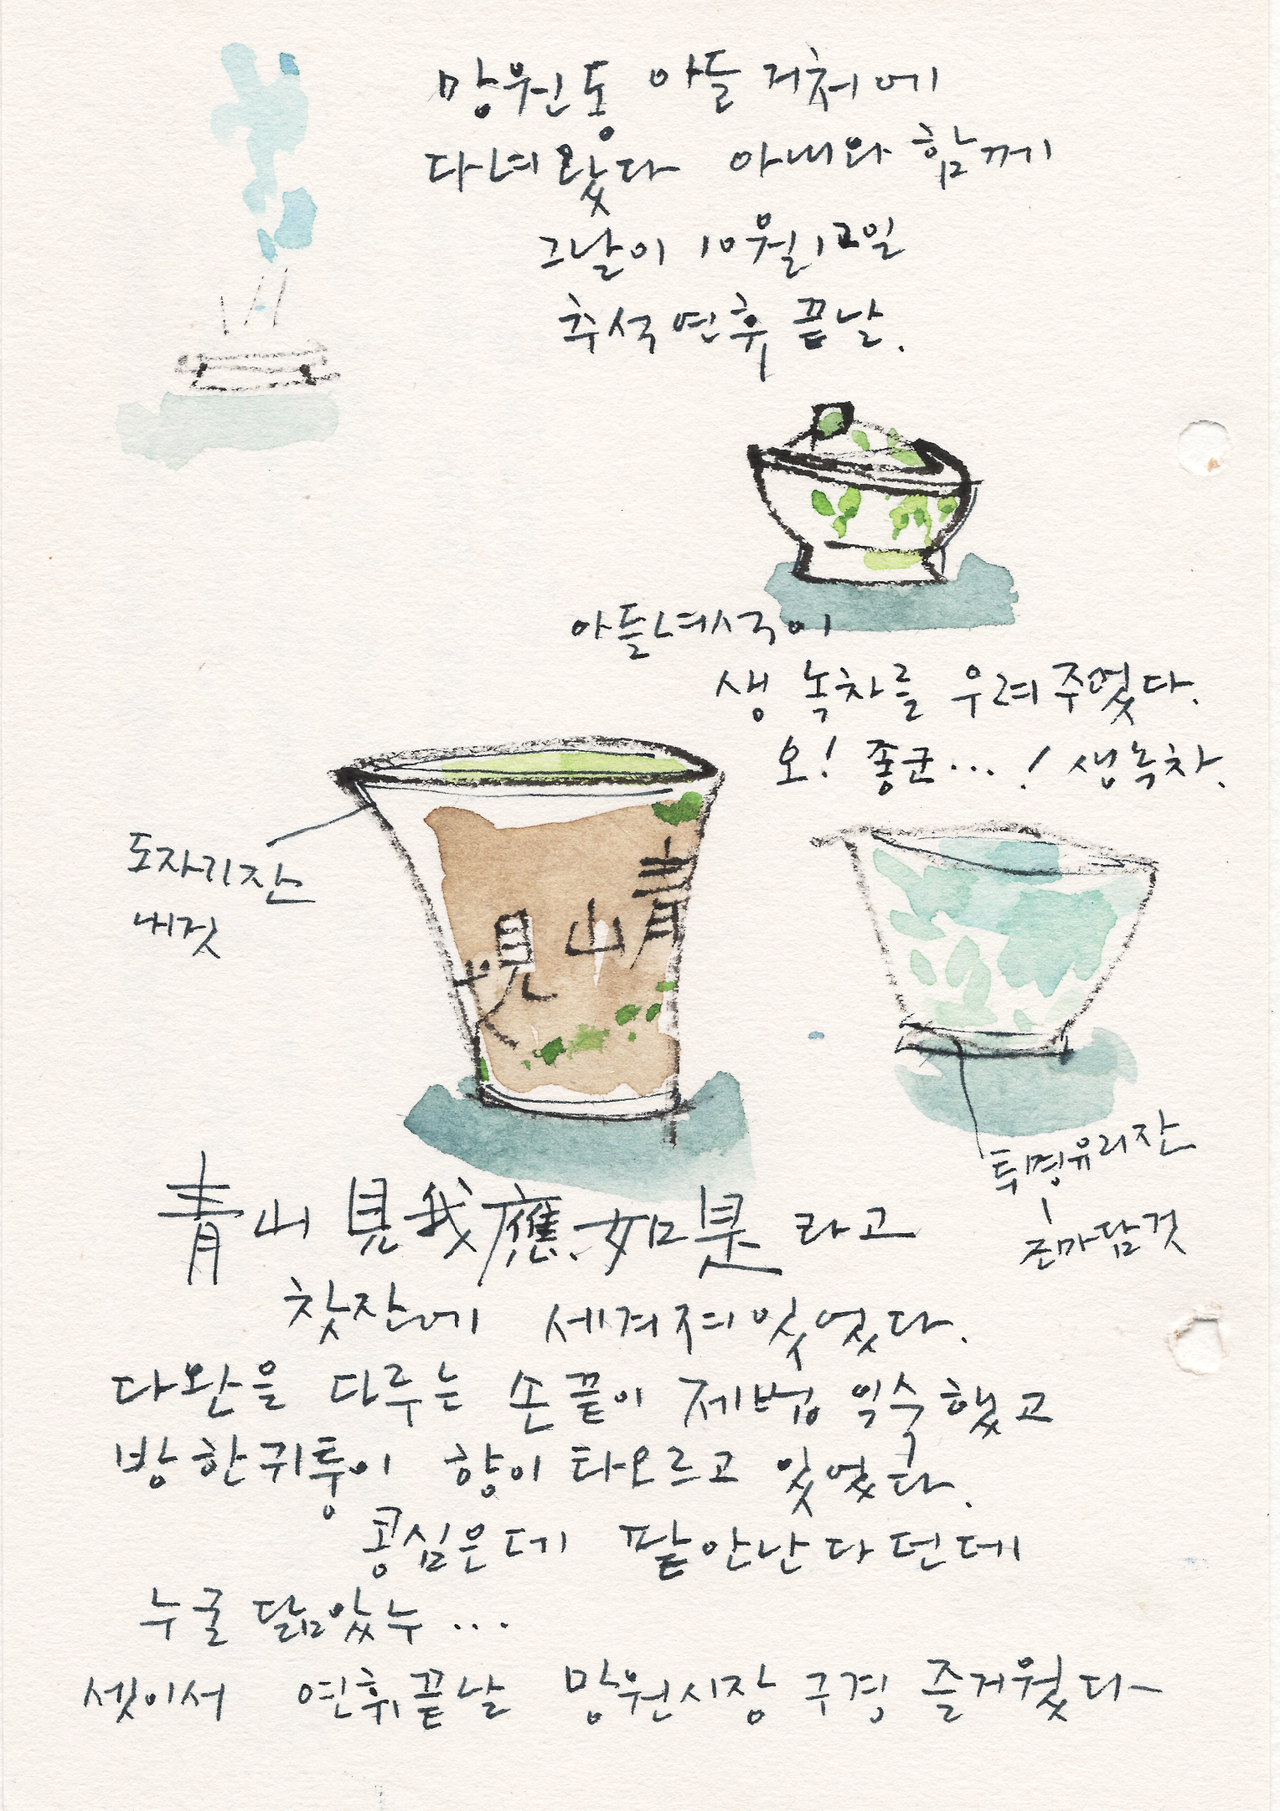 망원동 아들 거처에
다녀왔다 아내와 함께
그날이 10월 12일
추석연휴 끝날.
아들녀석이
생 녹차를 우려주었다.
오! 좋군...! 생녹차.
도자기잔
내것
青
山
見
투명유리잔
준마담것
青山見我應如是 라고
찻잔에 세겨져있었다.
다완을 다루는 손끝이 제법 익숙했고
방한귀퉁이 향이 타오르고 있었다.
콩심은데 팥안난다던데
누굴 닮았누...
셋이서 연휴끝날 망원시장 구경 즐거웠다